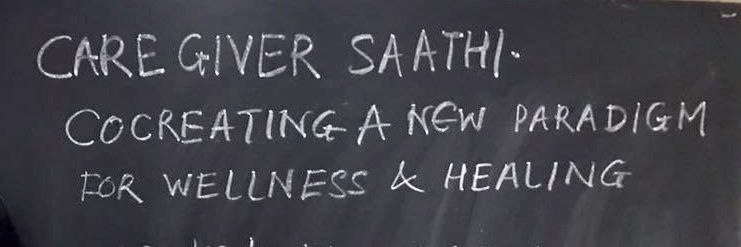 CARE GIVER SAATHI.
COCREATING A NEW PARADIGM
FOR WELLNESS & HEALING